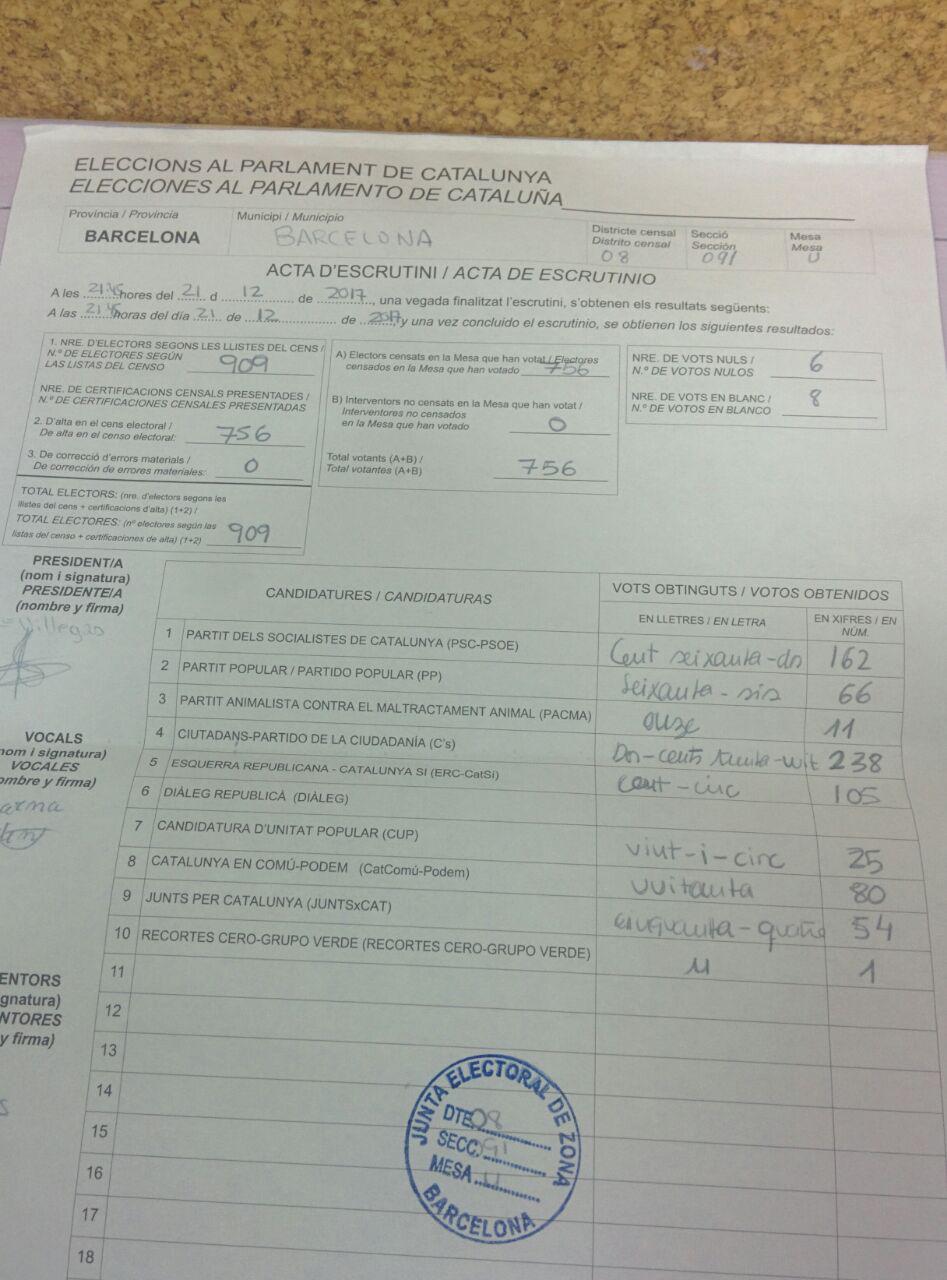 ELECCIONS AL PARLAMENT DE CATALUNYA
ELECCIONES AL PARLAMENTO DE CATALUÑA
Provincia / Provincia
BARCELONA
Municipi / Municipio
BARCELONA
Districte censal
Distrito censal
08
Secció
Sección
091
Mesa
Mesa
U
ACTA D'ESCRUTINI / ACTA DE ESCRUTINIO
A les 21:45 hores del 21 d 12 de 2017, una vegada finalitzat l'escrutini, s'obtenen els resultats següents:
A las 21:45 horas del día 21 de 12 de 2017 y una vez concluido el escrutinio, se obtienen los siguientes resultados:
1. NRE. D'ELECTORS SEGONS LES LLISTES DEL CENS /
N.º DE ELECTORES SEGÚN
LAS LISTAS DEL CENSO 909
NRE. DE CERTIFICACIONS CENSALS PRESENTADES /
N.º DE CERTIFICACIONES CENSALES PRESENTADAS
2. D'alta en el cens electoral /
De alta en el censo electoral: 756
3. De correcció d'errors materials /
De corrección de errores materiales: 0
TOTAL ELECTORS: (nre. d'electors segons les
llistes del cens + certificacions d'alta) (1+2) /
TOTAL ELECTORES: (nº electores según las
listas del censo + certificaciones de alta) (1+2) 909
A) Electors censats en la Mesa que han votat / Electores
censados en la Mesa que han votado 756
B) Interventors no censats en la Mesa que han votat /
Interventores no censados
en la Mesa que han votado 0
Total votants (A+B) /
Total votantes (A+B) 756
NRE. DE VOTS NULS /
N.º DE VOTOS NULOS 6
NRE. DE VOTS EN BLANC /
N.º DE VOTOS EN BLANCO 8
PRESIDENT/A
(nom i signatura)
PRESIDENTE/A
(nombre y firma)
Villegas
VOCALS
nom i signatura)
VOCALES
ombre y firma)
ENTORS
gnatura)
NTORES
y firma)
CANDIDATURES / CANDIDATURAS
VOTS OBTINGUTS / VOTOS OBTENIDOS
EN LLETRES / EN LETRA
EN XIFRES / EN
NÚM.
1 PARTIT DELS SOCIALISTES DE CATALUNYA (PSC-PSOE) Cent seixanta-dos 162
2 PARTIT POPULAR / PARTIDO POPULAR (PP) Seixanta-sis 66
3 PARTIT ANIMALISTA CONTRA EL MALTRACTAMENT ANIMAL (PACMA) onze 11
4 CIUTADANS-PARTIDO DE LA CIUDADANÍA (C's) Dos-cents trenta-vuit 238
5 ESQUERRA REPUBLICANA - CATALUNYA SI (ERC-CatSí) cent-cinc 105
6 DIÀLEG REPUBLICÀ (DIÀLEG)
7 CANDIDATURA D'UNITAT POPULAR (CUP) vint-i-cinc 25
8 CATALUNYA EN COMÚ-PODEM (CatComú-Podem) vuitanta 80
9 JUNTS PER CATALUNYA (JUNTSxCAT) cinquanta-quatre 54
10 RECORTES CERO-GRUPO VERDE (RECORTES CERO-GRUPO VERDE) u 1
11
12
13
14
15
16
17
18
JUNTA ELECTORAL DE ZONA
DTE. 08
SECC. 091
MESA U
BARCELONA